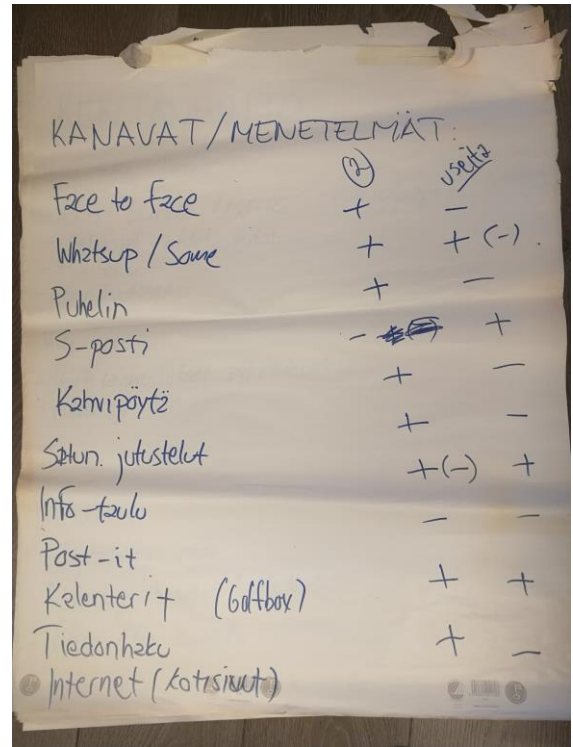 KANAVAT/MENETELMÄT:
2 useita
Face to face + -
Whatsup / Some + + (-)
Puhelin + -
S-posti - +
Kahvipöytä + -
Satun. jutustelut + -
Info-taulu +(-) +
Post-it - -
Kalenterit (Golfbox) + +
Tiedonhaku + -
Internet (kotisivut)